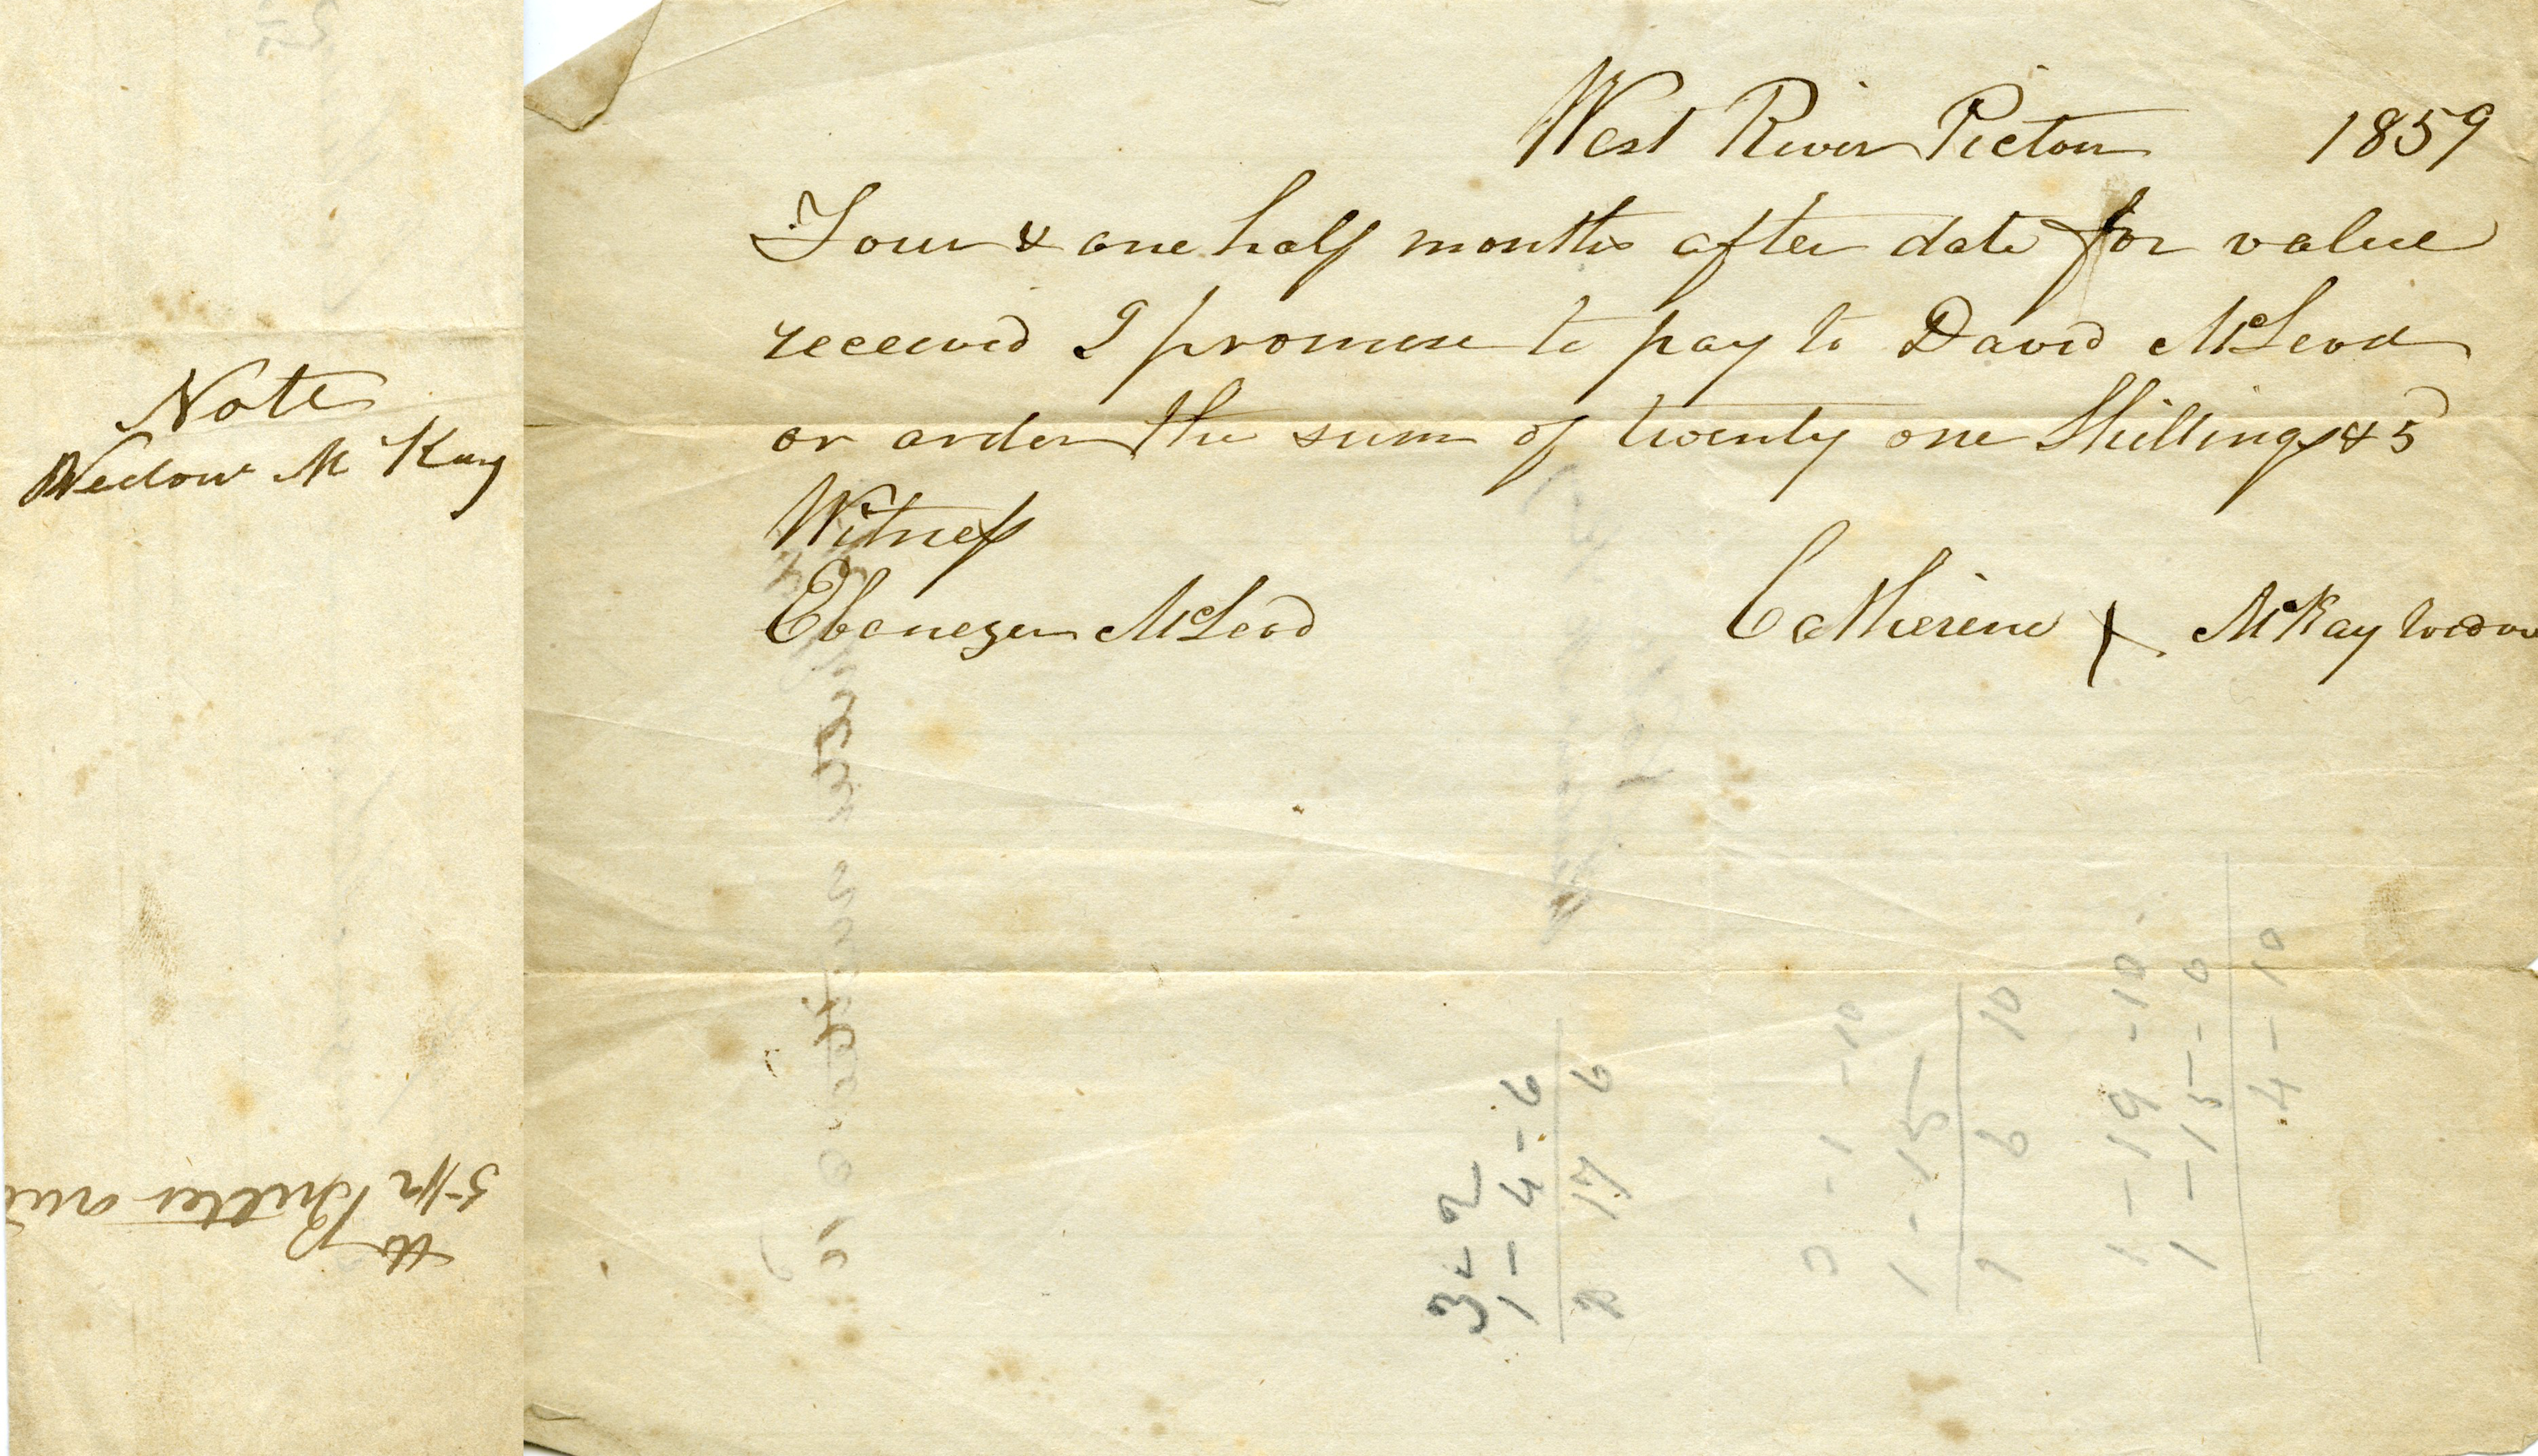 West River Pictou 1859
Four & one half months after date for value
received I promise to pay to David McLeod
or order the sum of twenty one Shillings & 5d
Witness
Ebenezer McLeod
Catherine X McKay widow
Note
Widow McKay
Butter
3 - 2
1 - 4 - 6
17 6
- 1 - 10
1 - 15
6 10
1 - 19 - 10
1 - 15 - 0
4 - 10